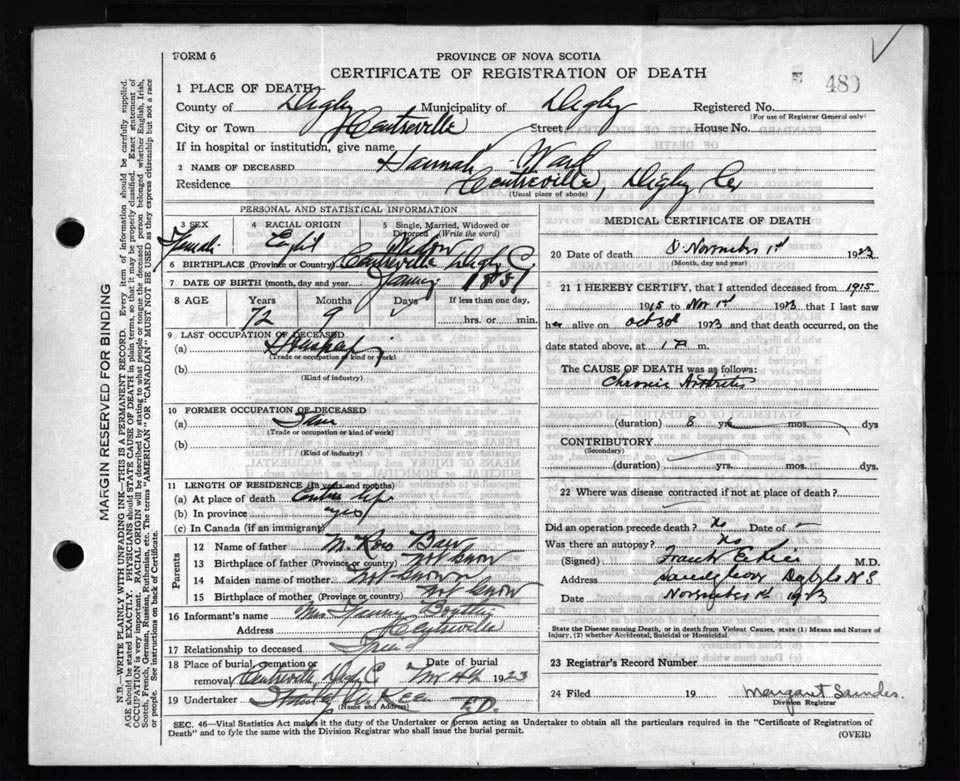 FORM 6
PROVINCE OF NOVA SCOTIA
CERTIFICATE OF REGISTRATION OF DEATH
480
1 PLACE OF DEATH—
County of Digby Municipality of Digby Registered No.
(For use of Registrar General only)
City or Town Centreville Street House No.
If in hospital or institution, give name
2 NAME OF DECEASED Hannah Ward
Residence Centreville, Digby Co
(Usual place of abode)
PERSONAL AND STATISTICAL INFORMATION
3 SEX 4 RACIAL ORIGIN 5 Single, Married, Widowed or Divorced (Write the word)
Female Widow
6 BIRTHPLACE (Province or Country) Centreville Digby Co
7 DATE OF BIRTH (month, day and year) 1851
8 AGE Years Months Days If less than one day,
72 9 hrs. or min.
9 LAST OCCUPATION OF DECEASED
(a)
(Trade or occupation or kind of work)
(b)
(Kind of industry)
10 FORMER OCCUPATION OF DECEASED
(a)
(Trade or occupation or kind of work)
(b)
(Kind of industry)
11 LENGTH OF RESIDENCE (In years and months)
(a) At place of death Entire life
(b) In province yes
(c) In Canada (if an immigrant)
Parents
12 Name of father
13 Birthplace of father (Province or country) not know
14 Maiden name of mother not known
15 Birthplace of mother (Province or country) not know
16 Informant's name Mrs
Address Centreville
17 Relationship to deceased
18 Place of burial, cremation or removal Centreville, Digby C Date of burial 1923
19 Undertaker
(Name and Address)
MEDICAL CERTIFICATE OF DEATH
20 Date of death November 1st 1923
(Month, day and year)
21 I HEREBY CERTIFY, that I attended deceased from 1915
1915 to Nov 1st 1923 that I last saw
her alive on Oct 30th 1923 and that death occurred, on the
date stated above, at m.
The CAUSE OF DEATH was as follows:
Chronic Arthritis
(duration) 8 yrs. mos. dys
CONTRIBUTORY
(Secondary)
(duration) yrs. mos. dys.
22 Where was disease contracted if not at place of death?
Did an operation precede death? No Date of –
Was there an autopsy? No
(Signed) M.D.
Address N S
Date November 1923
State the Disease causing Death, or in death from Violent Causes, state (1) Means and Nature of
Injury, (2) whether Accidental, Suicidal or Homicidal.
23 Registrar's Record Number
24 Filed 19 Margaret Saundes.
Division Registrar
SEC. 46—Vital Statistics Act makes it the duty of the Undertaker or person acting as Undertaker to obtain all the particulars required in the "Certificate of Registration of
Death" and to fyle the same with the Division Registrar who shall issue the burial permit.
(OVER)
MARGIN RESERVED FOR BINDING
N.B.—WRITE PLAINLY WITH UNFADING INK—THIS IS A PERMANENT RECORD. Every item of information should be carefully supplied.
AGE should be stated EXACTLY. PHYSICIANS should STATE CAUSE OF DEATH in plain terms, so that it may be properly classified. Exact statement of
OCCUPATION is very important. RACIAL ORIGIN will be described by stating to what people or tongue the deceased person belonged whether English, Irish,
Scotch, French, German, Russian, Ruthenian, etc. The terms "AMERICAN" OR "CANADIAN" MUST NOT BE USED as they express citizenship but not a race
or people. See instructions on back of Certificate.